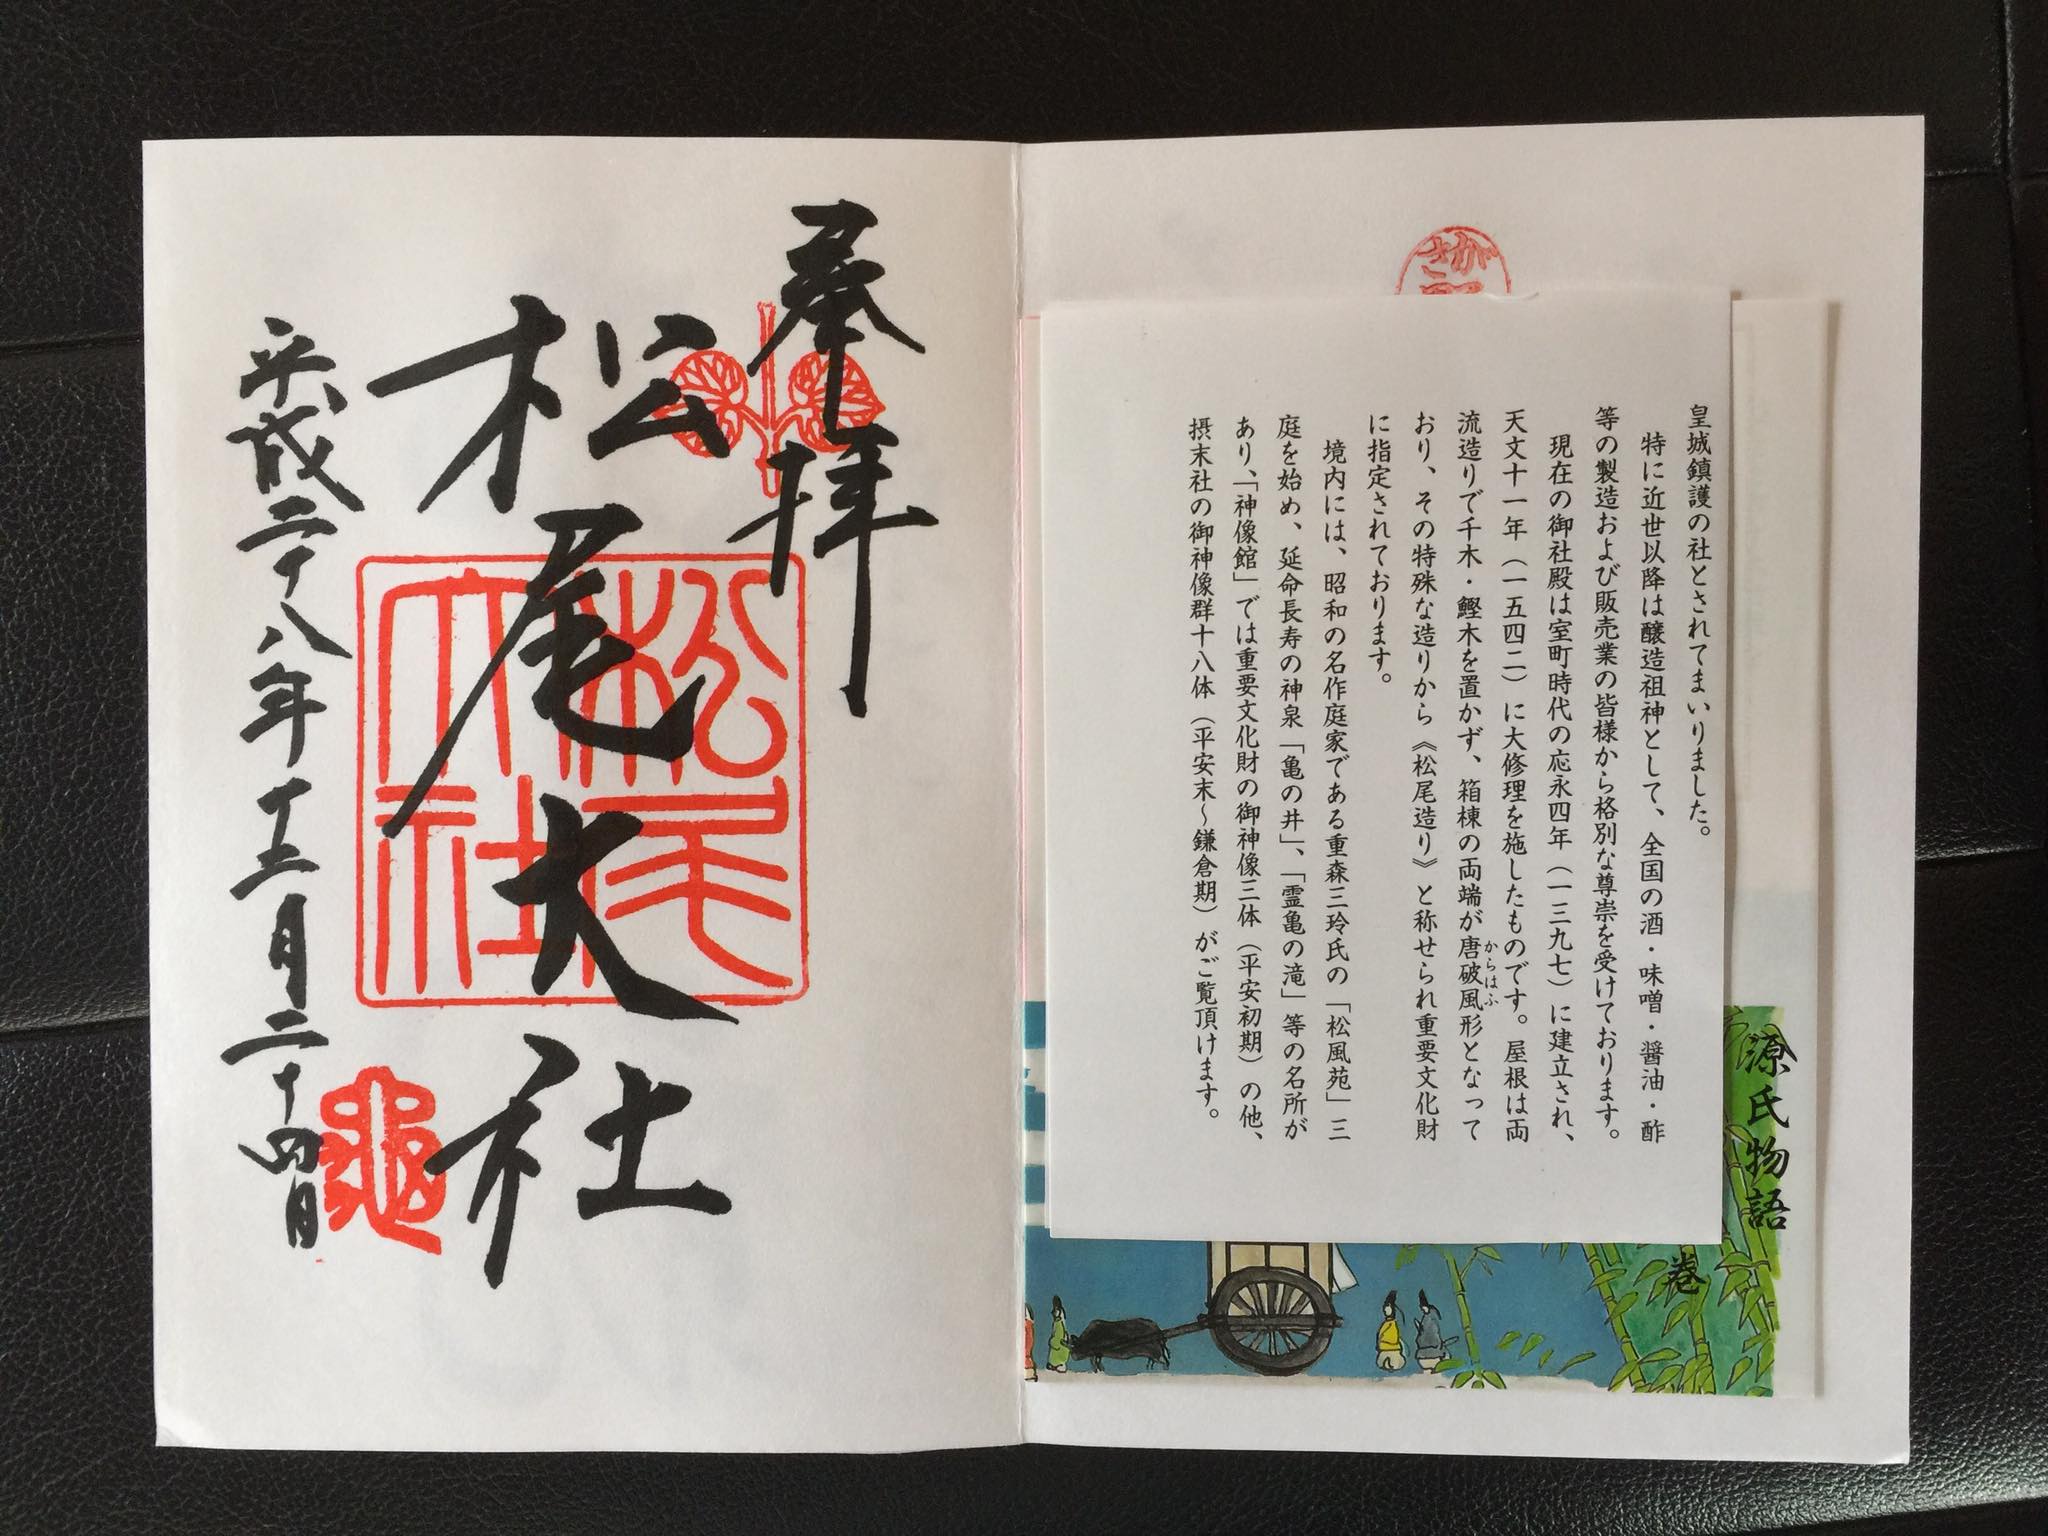 さが
皇城鎮護の社とされてまいりました。
特に近世以降は醸造祖神として、全国の酒・味噌・醤油・酢
等の製造および販売業の皆様から格別な尊崇を受けております。
現在の御社殿は室町時代の応永四年(一三九七)に建立され、
天文十一年(一五四二)に大修理を施したものです。屋根は両
流造りで千木・鰹木を置かず、箱棟の両端が唐破風形となって
からはふ
おり、その特殊な造りから《松尾造り》と称せられ重要文化財
に指定されております。
境内には、昭和の名作庭家である重森三玲氏の「松風苑」三
庭を始め、延命長寿の神泉「亀の井」、「霊亀の滝」等の名所が
あり、「神像館」では重要文化財の御神像三体(平安初期)の他、
摂末社の御神像群十八体(平安末~鎌倉期)がご覧頂けます。
源氏物語
巻
奉拝
松尾大社
松尾大社
平成二十八年十二月二十四日
亀